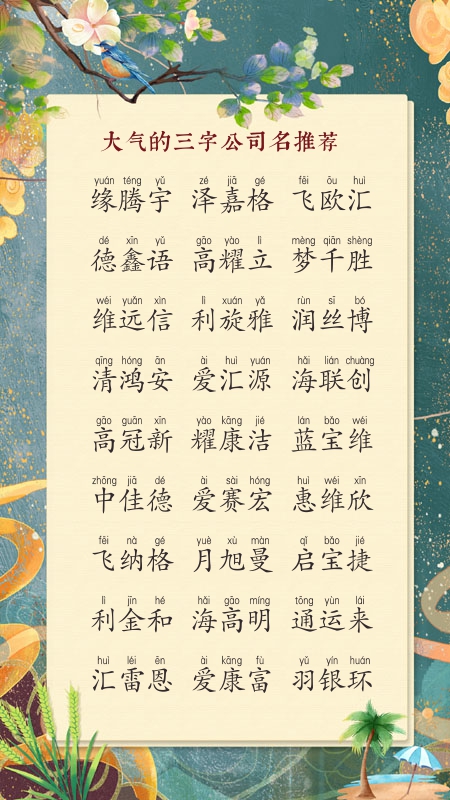 大气的三字公司名推荐
yuán téng yǔ zé jiā gé fēi ōu huì
缘腾宇 泽嘉格 飞欧汇
dé xīn yǔ gāo yào lì mèng qiān shèng
德鑫语 高耀立 梦千胜
wéi yuǎn xìn lì xuán yǎ rùn sī bó
维远信 利旋雅 润丝博
qīng hóng ān ài huì yuán hǎi lián chuàng
清鸿安 爱汇源 海联创
gāo guān xīn yào kāng jié lán bǎo wéi
高冠新 耀康洁 蓝宝维
zhōng jiā dé ài sài hóng huì wéi xīn
中佳德 爱赛宏 惠维欣
fēi nà gé yuè xù màn qǐ bǎo jié
飞纳格 月旭曼 启宝捷
lì jīn hé hǎi gāo míng tōng yùn lái
利金和 海高明 通运来
huì léi ēn ài kāng fù yǔ yín huán
汇雷恩 爱康富 羽银环